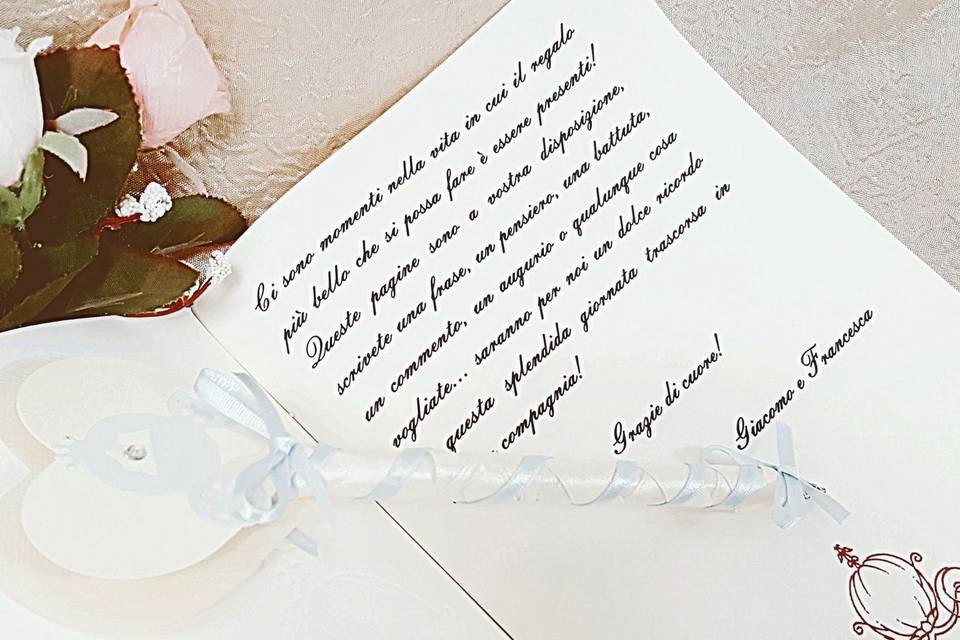 Ci sono momenti nella vita in cui il regalo
più bello che si possa fare è essere presenti!
Queste pagine sono a vostra disposizione,
scrivete una frase, un pensiero, una battuta,
un commento, un augurio o qualunque cosa
vogliate... saranno per noi un dolce ricordo
questa splendida giornata trascorsa in
compagnia!
Grazie di cuore!
Giacomo e Francesca